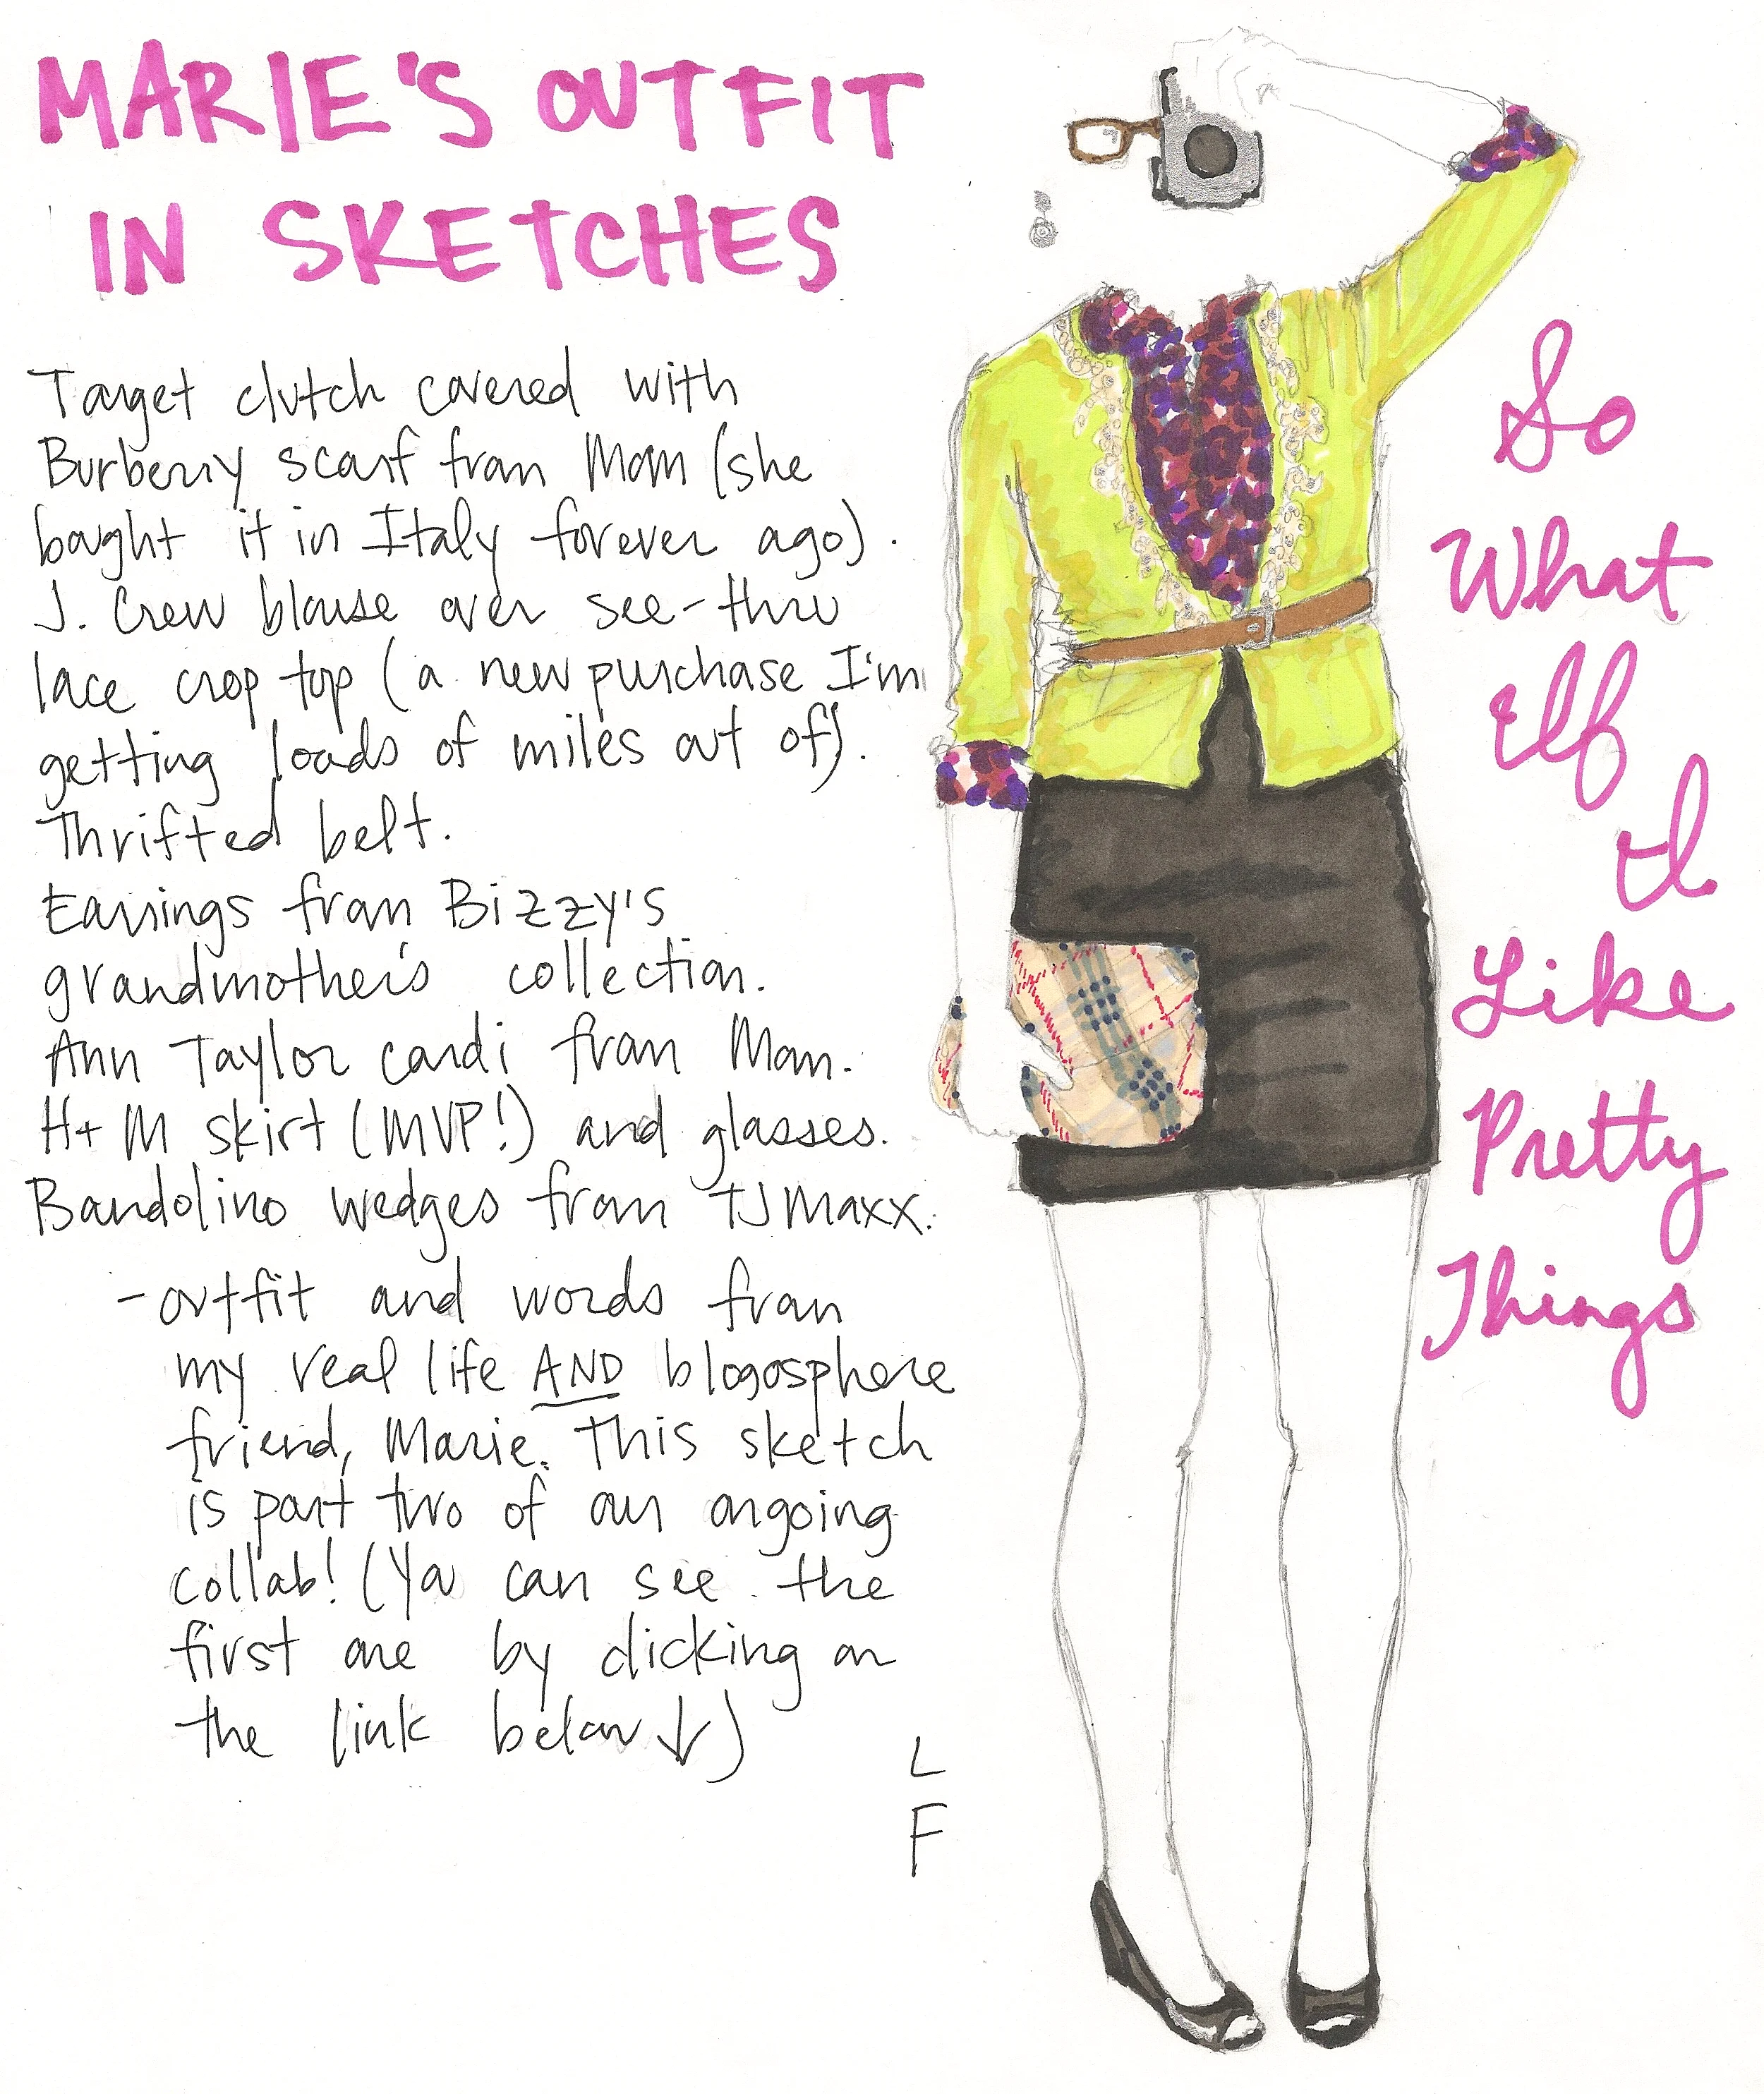 MARIE'S OUTFIT
IN SKETCHES
Target clutch covered with
Burberry scarf from Mom (she
bought it in Italy forever ago).
J. Crew blouse over see-thru
lace crop top (a new purchase I'm
getting loads of miles out of).
Thrifted belt.
Earrings from Bizzy's
grandmother's collection.
Ann Taylor cardi from Mom.
H+M skirt (MVP!) and glasses.
Bandolino wedges from TJMaxx.
- outfit and words from
my real life AND blogosphere
friend, Marie. This sketch
is part two of our ongoing
collab! (You can see the
first one by clicking on
the link below ↓)
L
F
So
What
If
I
Like
Pretty
Things